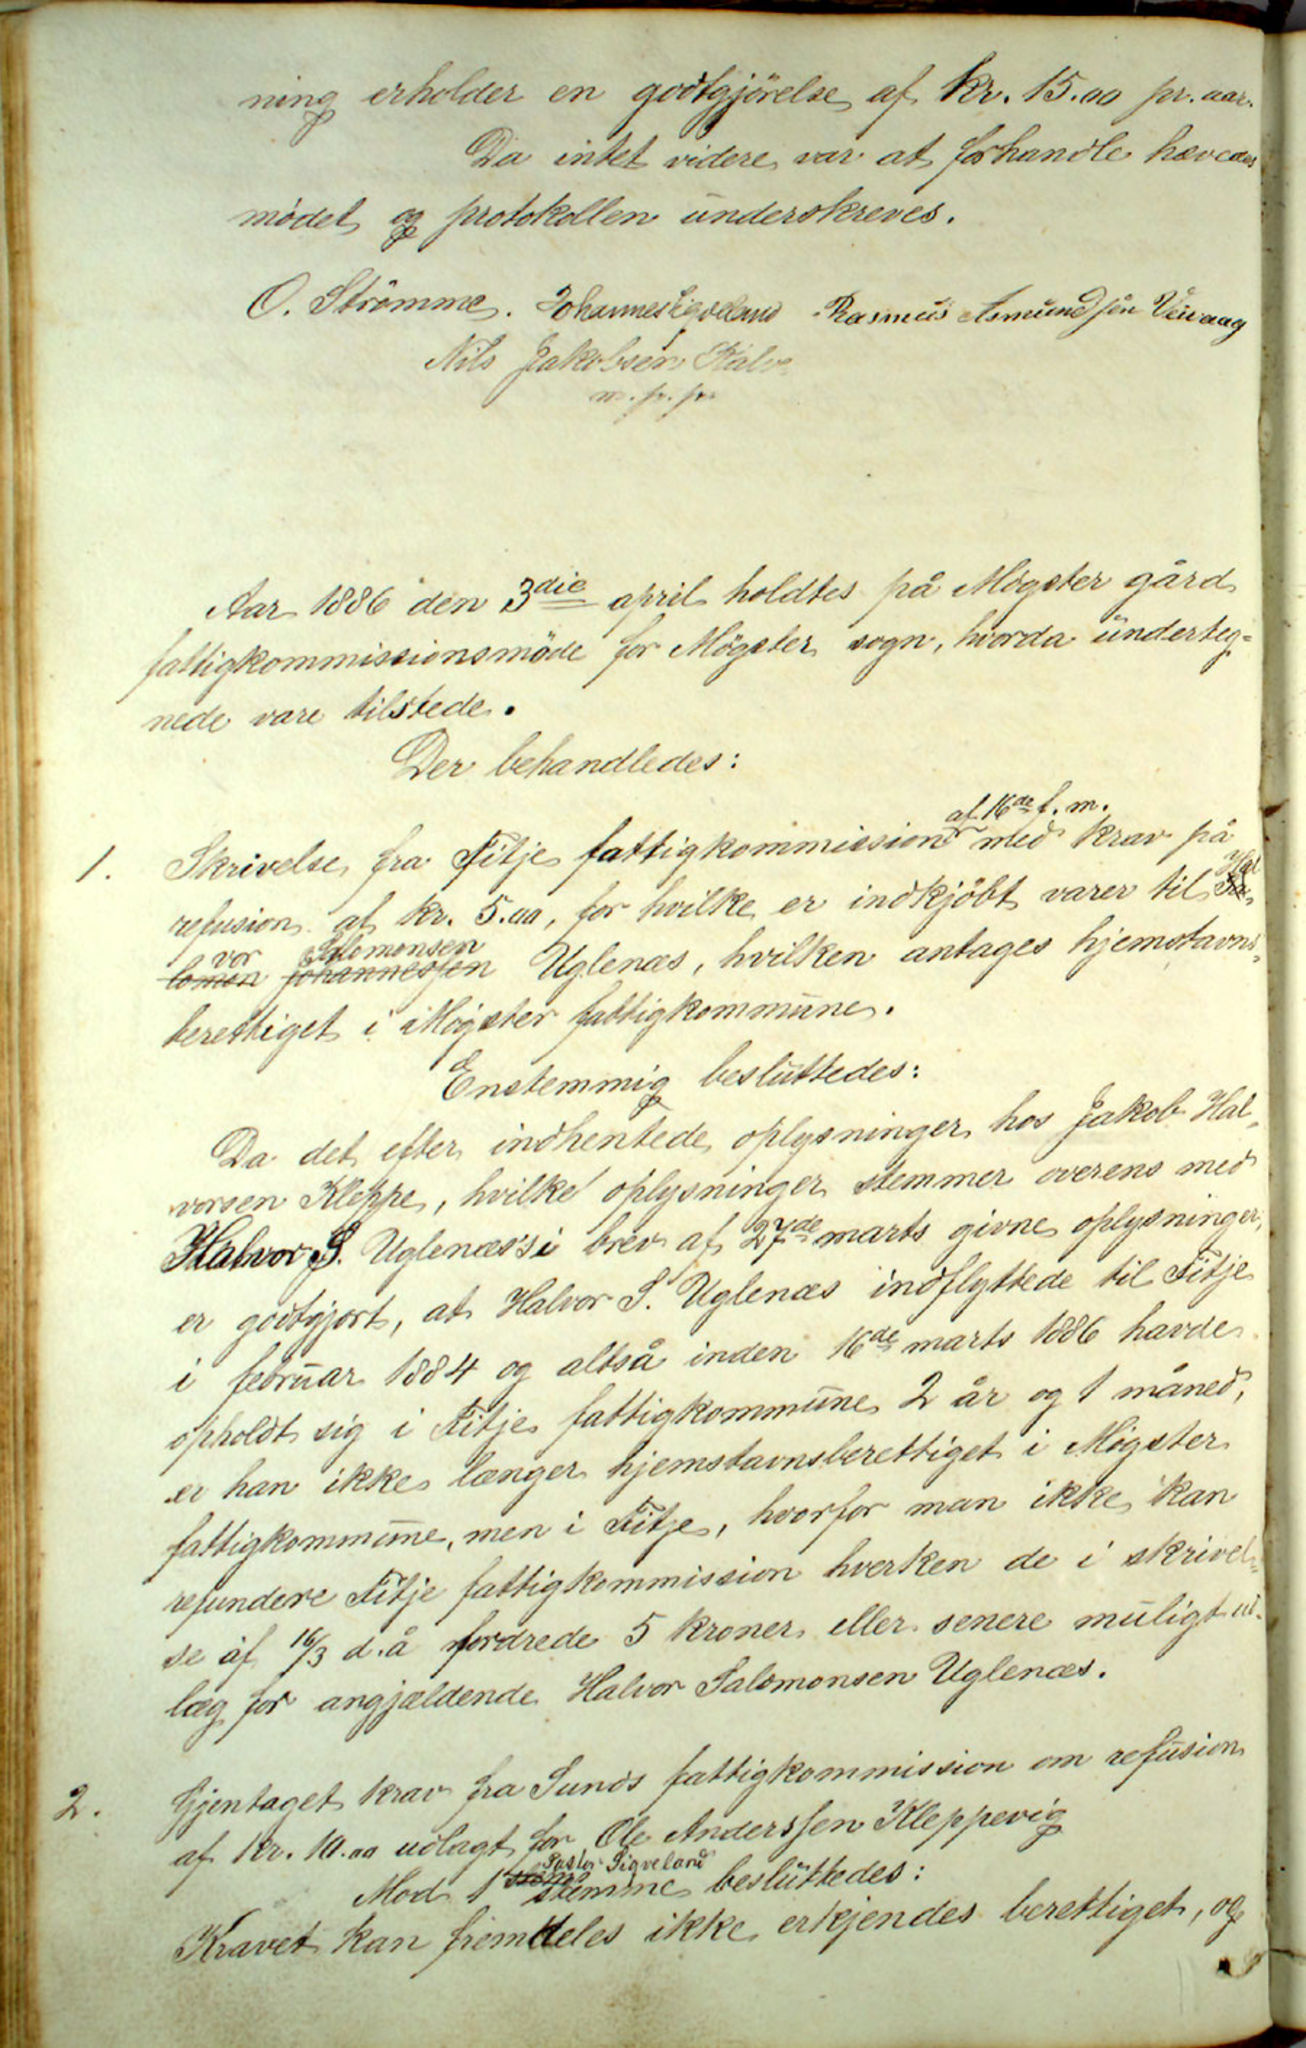 ning erholder en godtgjörelse af kr. 15.00 pr. aar.
Da intet videre var at forhandle hævedes
mödet og protokollen underskreves.
O. Strömme. Johannes Sigveland Rasmus Asmundsen Veivaag
Nils Jakobsen Kalve
m. p. p.
Aar 1886 den 3die april holdtes på Mögster gård
fattigkommissionsmöde for Mögster sogn, hvorda underteg=
nede vare tilstede.
Der behandledes:
af 16de f. m.
1. Skrivelse fra Fitje fattigkommission med krav på
refusion af kr. 5.00, for hvilke er indkjöbt varer til Sa= Hal
vor Salomonsen
lomon Johannessen Uglenæs, hvilken antages hjemstavns=
berettiget i Mögster fattigkommune.
Enstemmig besluttedes:
Da det efter indhentede oplysninger hos Jakob Hal=
vorsen Kleppe, hvilke oplysninger stemmer overens med
Halvor S. Uglenæs's i brev af 27de marts givne oplysninger,
er godtgjort, at Halvor S. Uglenæs indflyttede til Fitje
i februar 1884 og altså inden 16de marts 1886 havde
opholdt sig i Fitje fattigkommune 2 år og 1 måned,
er han ikke længer hjemstavnsberettiget i Mögster
fattigkommune, men i Fitje, hvorfor man ikke kan
refundere Fitje fattigkommission hverken de i skrivel=
se af 16/3 d. å fordrede 5 kroner eller senere muligt ud=
læg for angjældende Halvor Salomonsen Uglenæs.
2. Gjentaget krav fra Sunds fattigkommission om refusion
af kr. 10.00 udlagt for Ole Anderssen Kleppevig
Pastor Sigveland
Mod 1 stemme besluttedes:
Kravet kan fremdeles ikke erkjendes berettiget, og